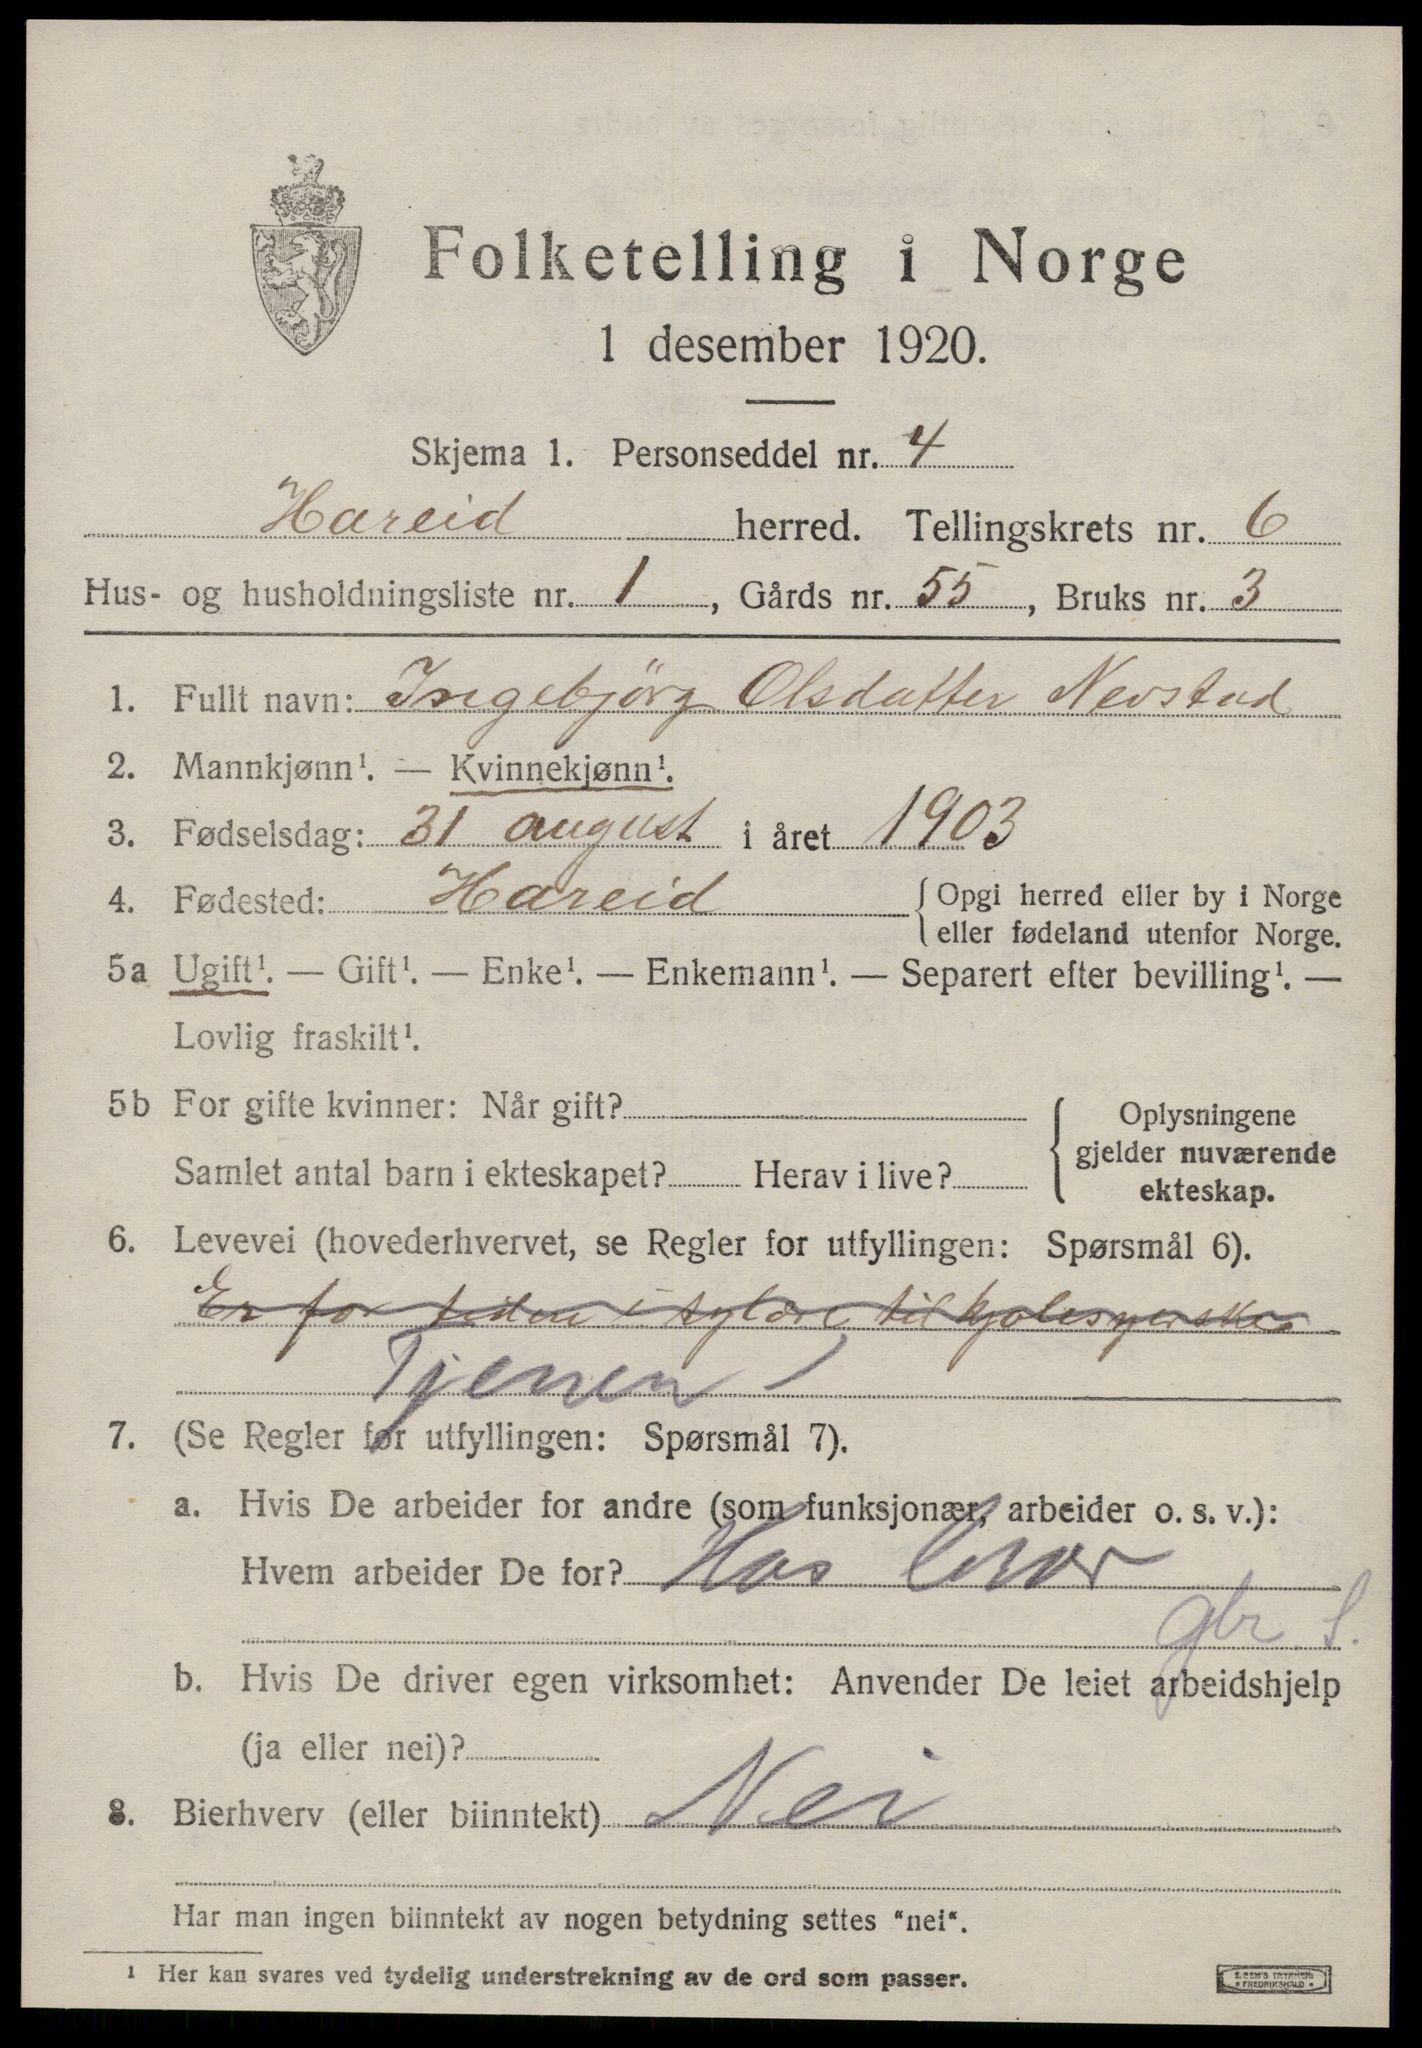 Folketelling i Norge
1 desember 1920.
Skjema 1. Personseddel nr. 4
Hareid herred. Tellingskrets nr. 6
Hus- og husholdningsliste nr. 1, Gårds nr. 55, Bruks nr. 3
1. Fullt navn: Ingebjörg Olsdatter Nevstad
2. Mannkjønn¹. — Kvinnekjønn¹.
3. Fødselsdag: 31 august i året 1903
4. Fødested: Hareid { Opgi herred eller by i Norge
eller fødeland utenfor Norge.
5a Ugift¹. — Gift¹. — Enke¹. — Enkemann¹. — Separert efter bevilling¹. —
Lovlig fraskilt¹.
5b For gifte kvinner: Når gift? { Oplysningene
gjelder nuværende
Samlet antal barn i ekteskapet? Herav i live?
ekteskap.
6. Levevei (hovederhvervet, se Regler for utfyllingen: Spørsmål 6).
Er for tiden i sylære til kjolesyerske.
Tjener
7. (Se Regler for utfyllingen: Spørsmål 7).
a. Hvis De arbeider for andre (som funksjonær, arbeider o. s. v.):
Hvem arbeider De for? Hos
gbr. S.
b. Hvis De driver egen virksomhet: Anvender De leiet arbeidshjelp
(ja eller nei)?
8. Bierhverv (eller biinntekt) Nei
Har man ingen biinntekt av nogen betydning settes "nei".
¹ Her kan svares ved tydelig understrekning av de ord som passer.
E. SEM'S TRYKKERI
FREDRIKSHALD